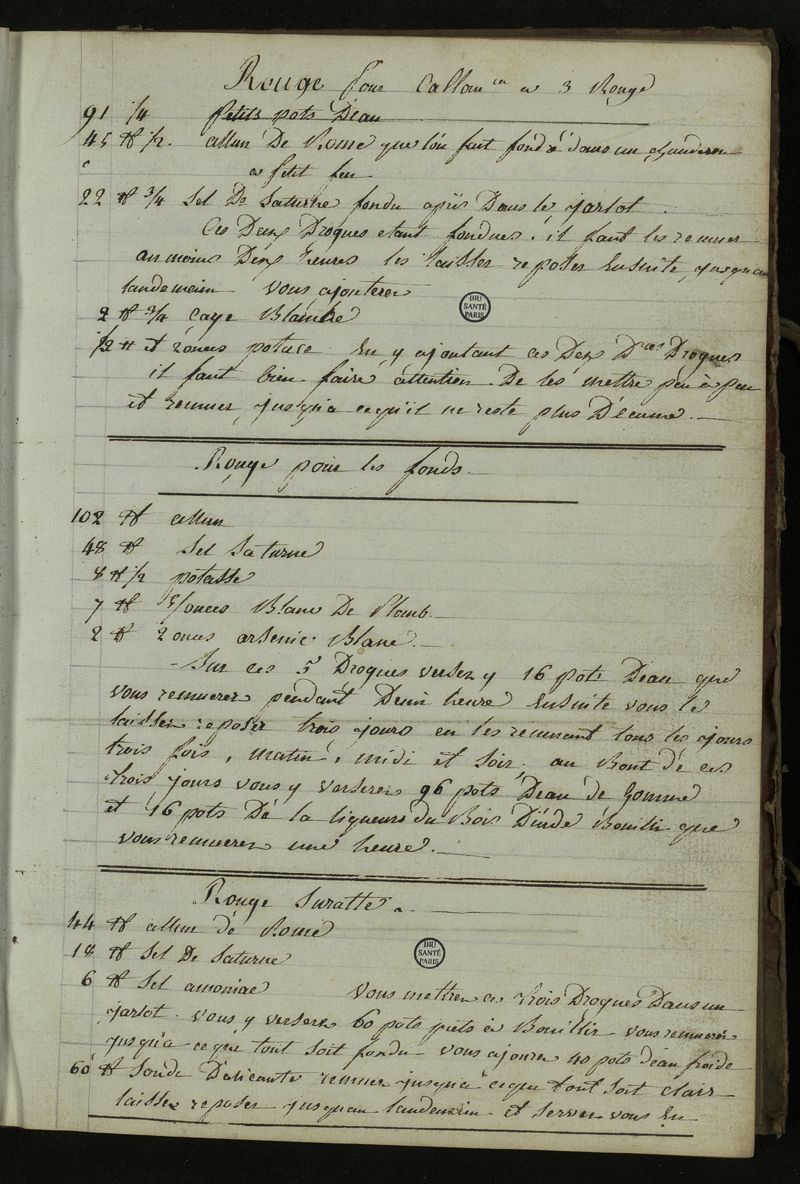 Rouge pour Callanca a 3 Rouge
91 1/4 petits pots D'eau
45 ℔ 1/2. allun De Rome que l'on fait fondre dans un chauderon
a petit feu
22 ℔ 3/4 Sel De Saturne fondu après Dans le jarlot.
Ces Deux Drogues etant fondues. il faut les remuer
au moins Deux heures les laisser reposer Ensuite, jusqu'au
landemain vous ajouterez
2 ℔ 3/4 Caye Blanche
BIU SANTÉ PARIS
1/2 ℔ et 2 onces potace En y ajoutant ces Deux Drogues
il faut bien faire attention De les mettre peu à peu
et remuer jusqu'a ce qu'il ne reste plus D'ecume.
Rouge pour les fonds.
102 ℔ allun
48 ℔ Sel Saturne
8 ℔ 1/2 potasse
7 ℔ onces Blanc De Plomb
2 ℔ 2 onces arsenic Blanc.
Sur ces 5 Drogues versez y 16 pots D'eau que
vous remuerez pendant Demi heure Ensuite vous le
laisser reposer trois jours en les remuant tous les jours
trois fois, matin, midi et soir. au Bout de ces
trois jours vous y verserez 96 pots D'eau de Gomme
et 16 pots De la liqueurs du Bois D'inde Bouilli que
vous remuerez une heure.
Rouge Suratte.
44 ℔ allun de Rome
18 ℔ Sel De Saturne
BIU SANTÉ PARIS
6 ℔ Sel amoniac vous mettrez ces trois Drogues Dans un
jarlot. vous y verserez 60 pots prets à Bouillir vous remuerez
jusqu'a ce que tout soit fondu vous ajouter 40 pots d'eau froide
60 ℔ Soude D'alicante remuer jusqu'a ce que tout soit clair
laissez reposer jusqu'au landemain et servez vous En